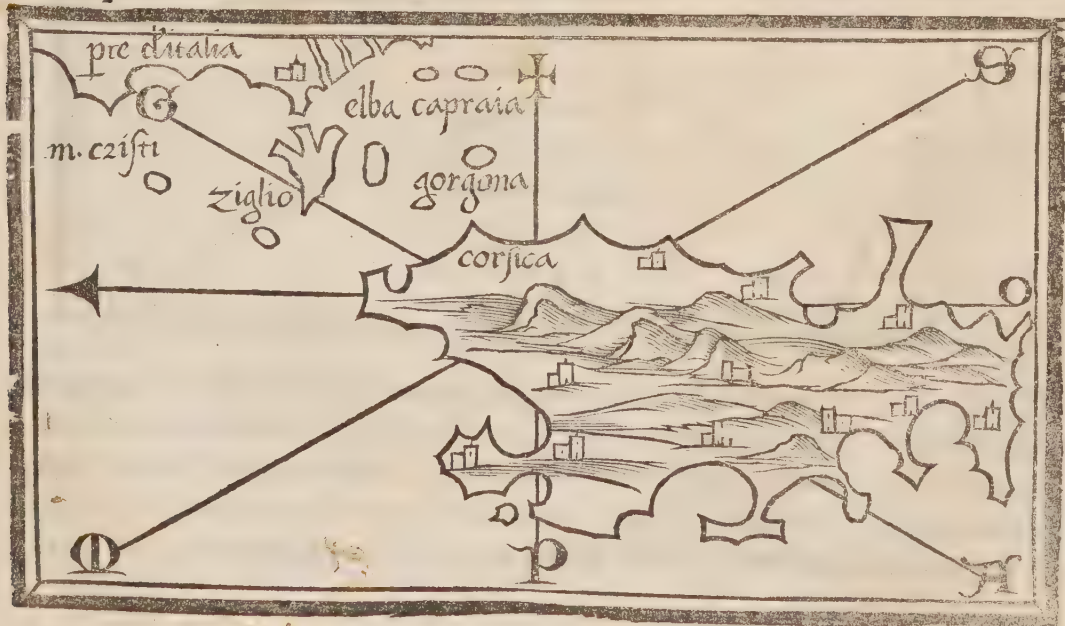 pte d'italia
G
S
elba capraia
m. czisti
ziglio
gorgona
corsica
O
M
P
A